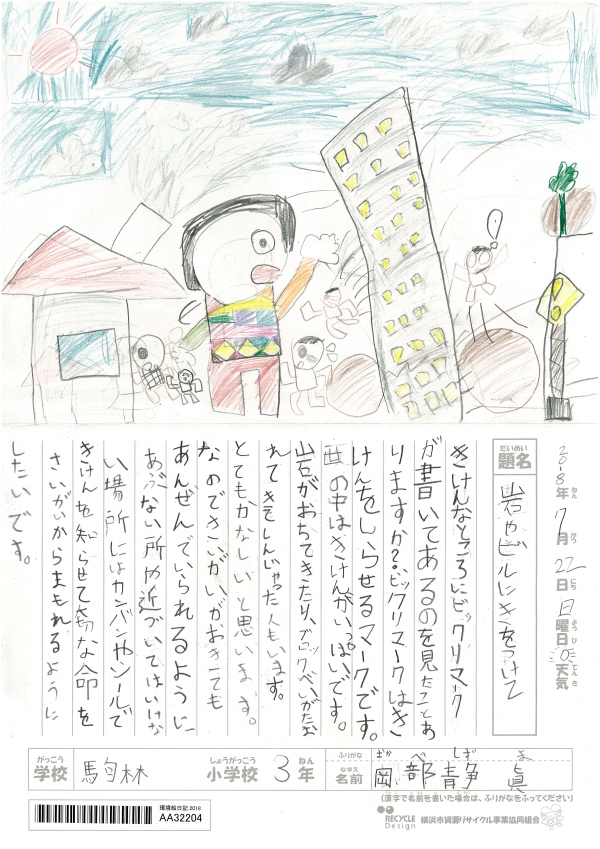 2018年7月22日日曜日 天気
ねん がつ にち ようび てんき
だいめい
題名
岩やビルにきをつけて
きけんなところにビックリマーク
が書いてあるのを見たことあ
りますか?ビックリマークはき
けんをしらせるマークです。
世の中はきけんがいっぱいです。
岩がおちてきたり、ブロックべいがたお
れてきてしんじゃった人もいます。
とてもかなしいと思います。
なのでさいがいがおきても
あんぜんでいられるように、
あぶない所や近づいてはいけな
い場所にはカンバンやシールで
きけんを知らせて大切な命を
さいがいからまもれるように
したいです。
がっこう しょうがっこう ねん ふりがな おか べ しず ま
学校 駒林 小学校 3年
なまえ
名前 岡部静眞
(漢字で名前を書いた場合は、ふりがなをふってください)
環境絵日記 2018
AA32204
RECYCLE Design 横浜市資源リサイクル事業協同組合